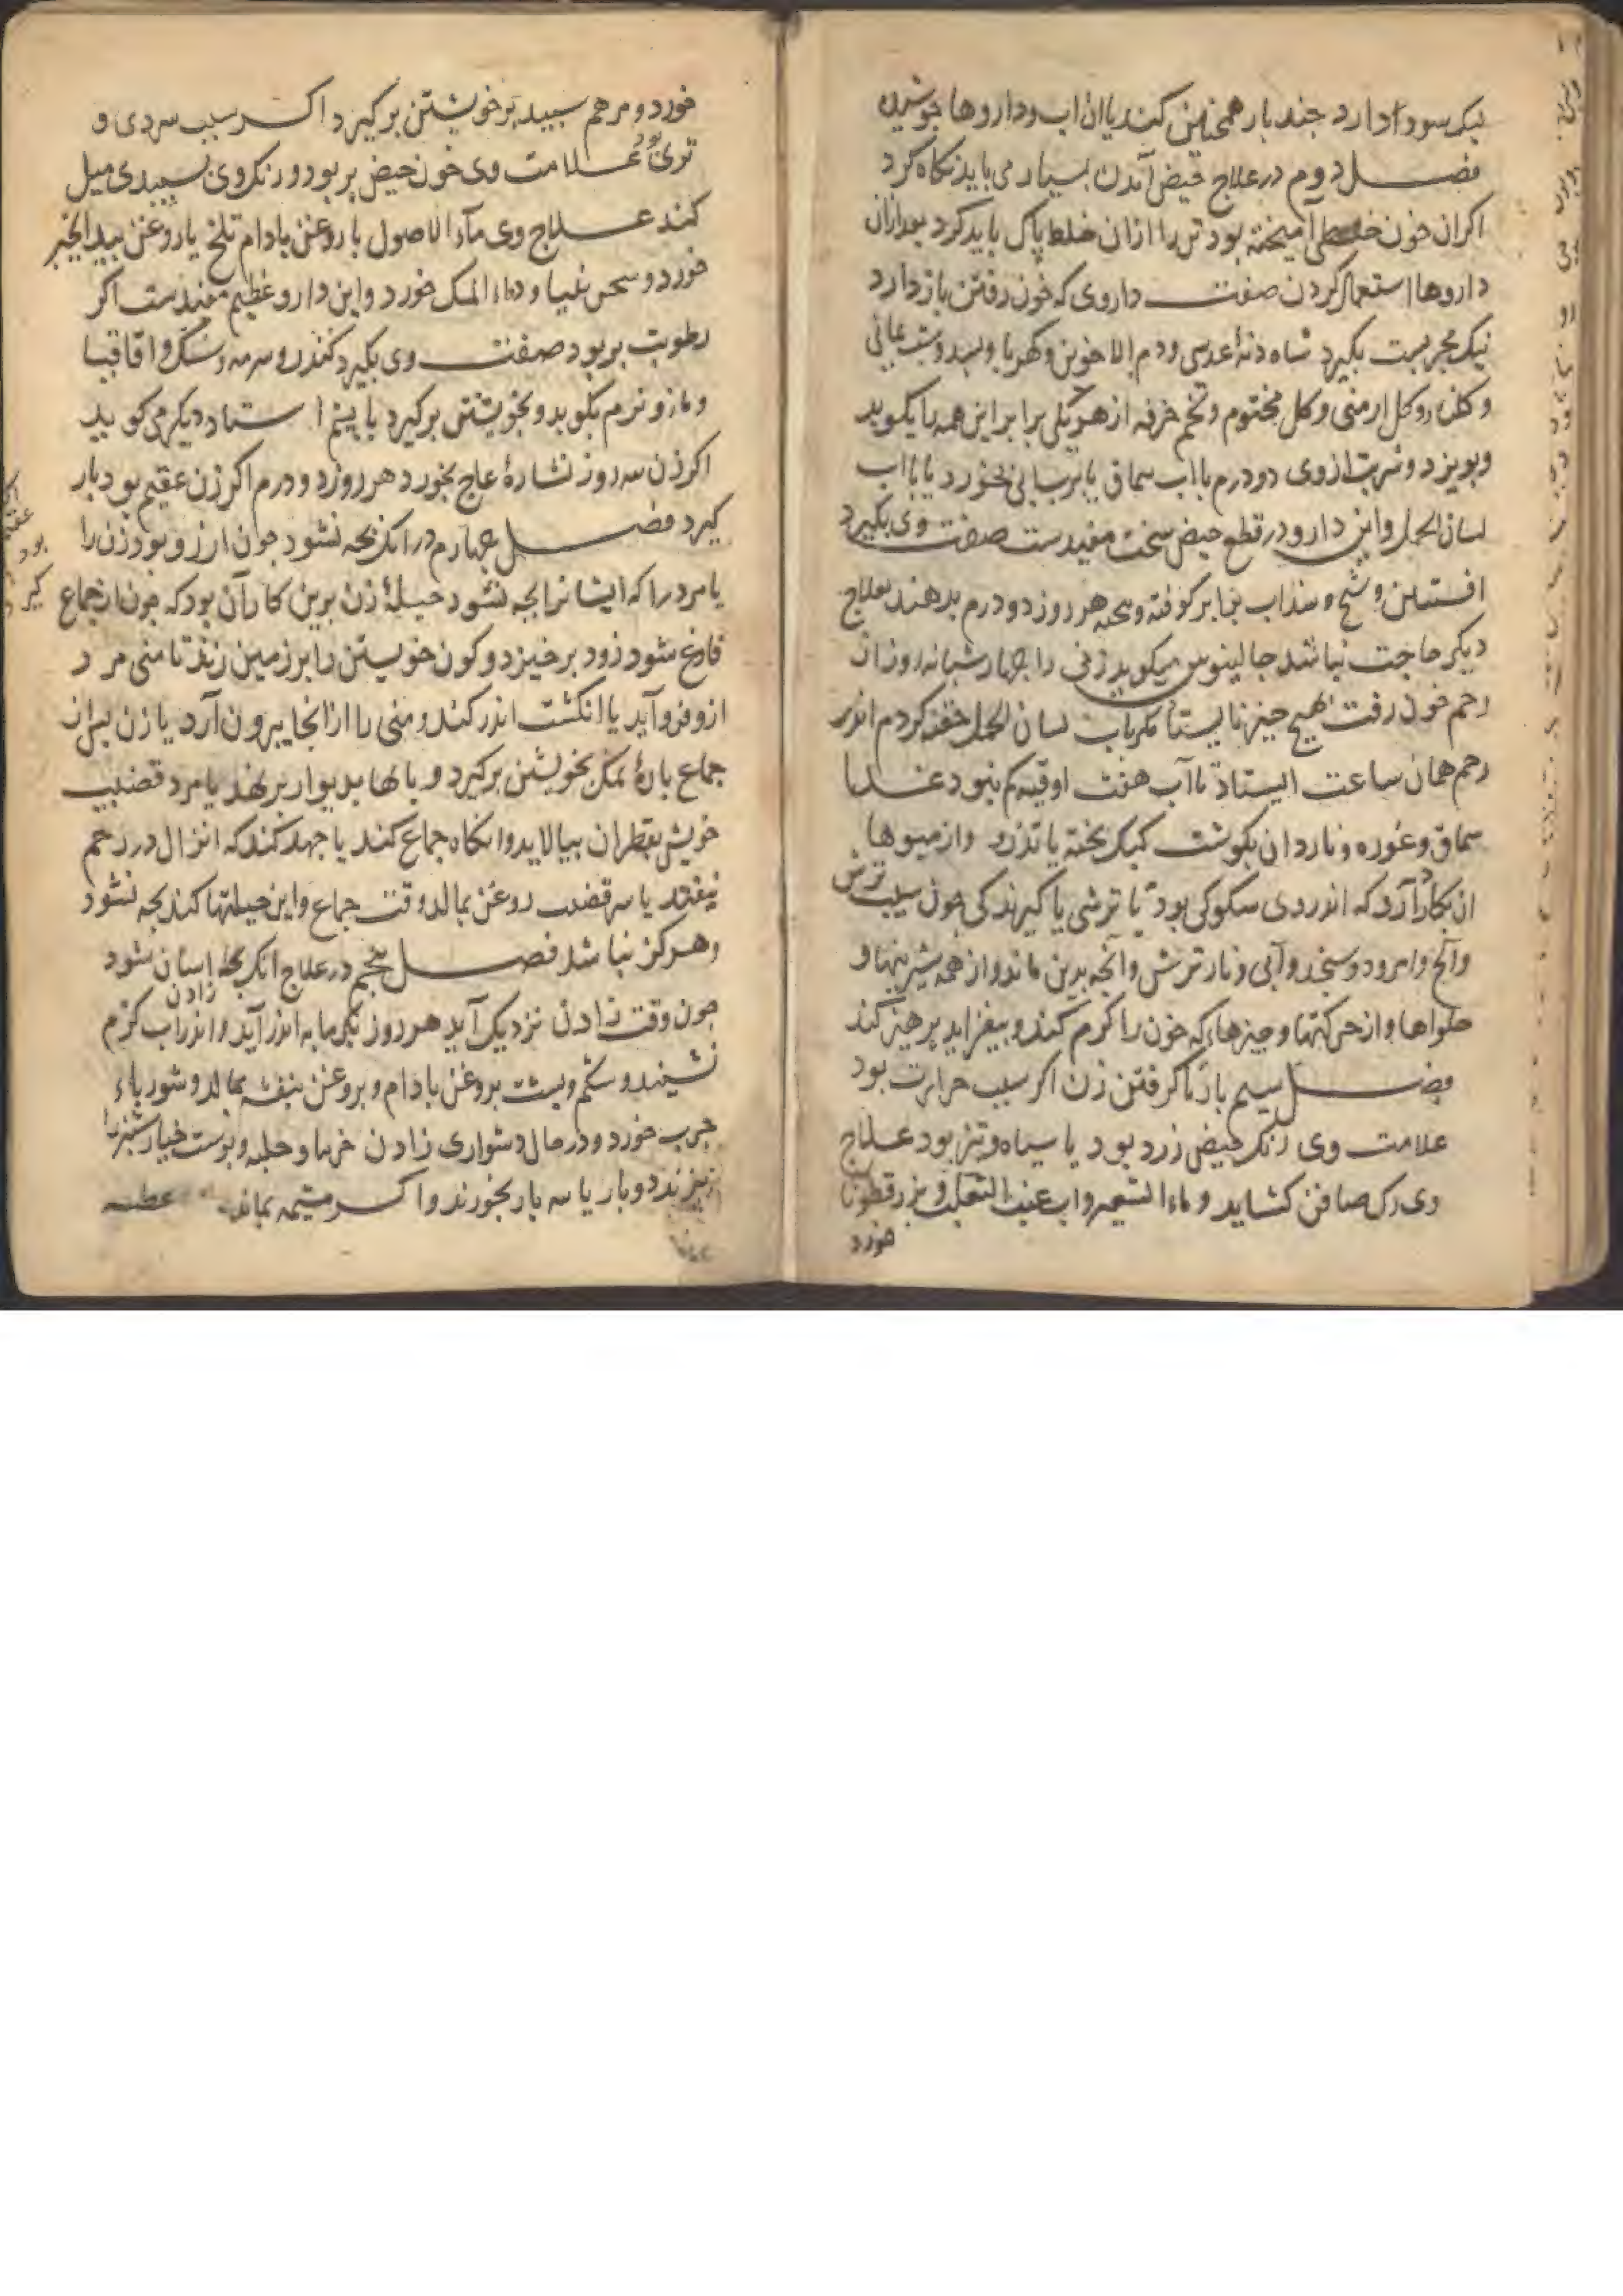 نیک سود دارد جند بار همجنین کند یا ان اب و داروها جوشیده
فصل دوم در علاج حیض آمدن بسیار می باید نکاه کرد
اکر ان خون خلطی آمیخته بود تن را ازان خلط پاک باید کرد بعد ازان
داروها استعمال کردن صفت داروی که خون رفتن باز دارد
نیک مجربست بکیرد شاه دنۀ عدسی و دم الاخوین و کهربا و بسد و شب یمانی
و کلنار و کل ارمنی و کل مختوم و تخم خرفه از هر یکی برابر این همه را بکوبد
و بویزد و شربت ازوی دو درم با اب سماق یا بخورد یا با اب
لسان الحمل و این دارو در قطع حیض سخت مفیدست صفت وی بکیرد
افسنتین و شیح و سذاب برابر کوفته و بخته هر روز دو درم بدهند بعلاج
دیکر حاجت نباشد جالینوس میکوید زنی را جهار شبانه روز از
رحم خون رفت بهیچ جیز نایستاد مکر باب لسان الحمل حقنه کردم اندر
رحم همان ساعت ایستاد تا آب هفت اوقیه کم نبود غذا
سماق و غوره و ناردان بکوشت کبک بخته یا تذرو و از میوها
ان بکار آرد که اندر وی بود یا ترشی یا کیرندکی جون سیب ترش
و امرود و سنجد و آبی و نار ترش و آنجه بدین ماند و از همه شیرینیها و
حلواها و از حرکتها و جیزهاء که خون را کرم کند و بیفزاید پرهیز کند
فصل سیم باز ناکرفتن زن اکر سبب حرارت بود
علامت وی رنک حیض زرد بود یا سیاه و تیز بود علاج
وی رک صافن کشاید و ماء الشعیر و اب عنب الثعلب و بزر قطونا
خورد
خورد و مرهم سبید برخویشتن برکیرد اکر سبب سردی و
تری بود علامت وی خون حیض بر بود و رنک وی بسبیدی میل
کند علاج وی ماء الاصول با روغن بادام تلخ یا روغن بید انجیر
خورد و و دواء المسک خورد و این دارو عظیم مفیدست اکر
رطوبت بر بود صفت وی بکیرد کندر و سرمه و سک و اقاقیا
و مازو نرم بکوبد و بخویشتن برکیرد با پشم استاد دیکر می کوید
اکر زن سه روز نشارۀ عاج بخورد هر روز دو درم اکر زن عقیم بود بار
کیرد فصل جهارم در انک بجه نشود جون ارزو بود زن را
یا مرد را که ایشانرا بجه نشود حیلۀ زن برین کار آن بود که جون از جماع
فارغ شود زود برخیزد و کون خویشتن را بر زمین زند تا منی مرد
ازو فرو آید یا انکشت اندر کند و منی را از انجا بیرون آرد یا زن بس از
جماع بارۀ نمک بخویشتن برکیرد و باها بدیوار بر نهد یا مرد قضیب
خویش بقطران بیالاید و انکاه جماع کند یا جهد کند که انزال در رحم
نیفتد یا سر قضیب روغن بمالد وقت جماع و این حیلتها کند بجه نشود
و هرکز نباشد فصل بنجم در علاج انک بجه اسان شود
زادن
جون وقت زادن نزدیک آید هر روز بکرمابه اندر آید و اندر اب کرم
نشیند و شکم و بشت بروغن بادام و بروغن بنفشه بمالد و شورباء
جرب خورد و در حال دشواری زادن خرما و حلبه و بوست خیار شنبر را
بپزند دو بار یا سه بار بخورند و اکر مشیمه بماند عطسه
عقیم
بود
کیر